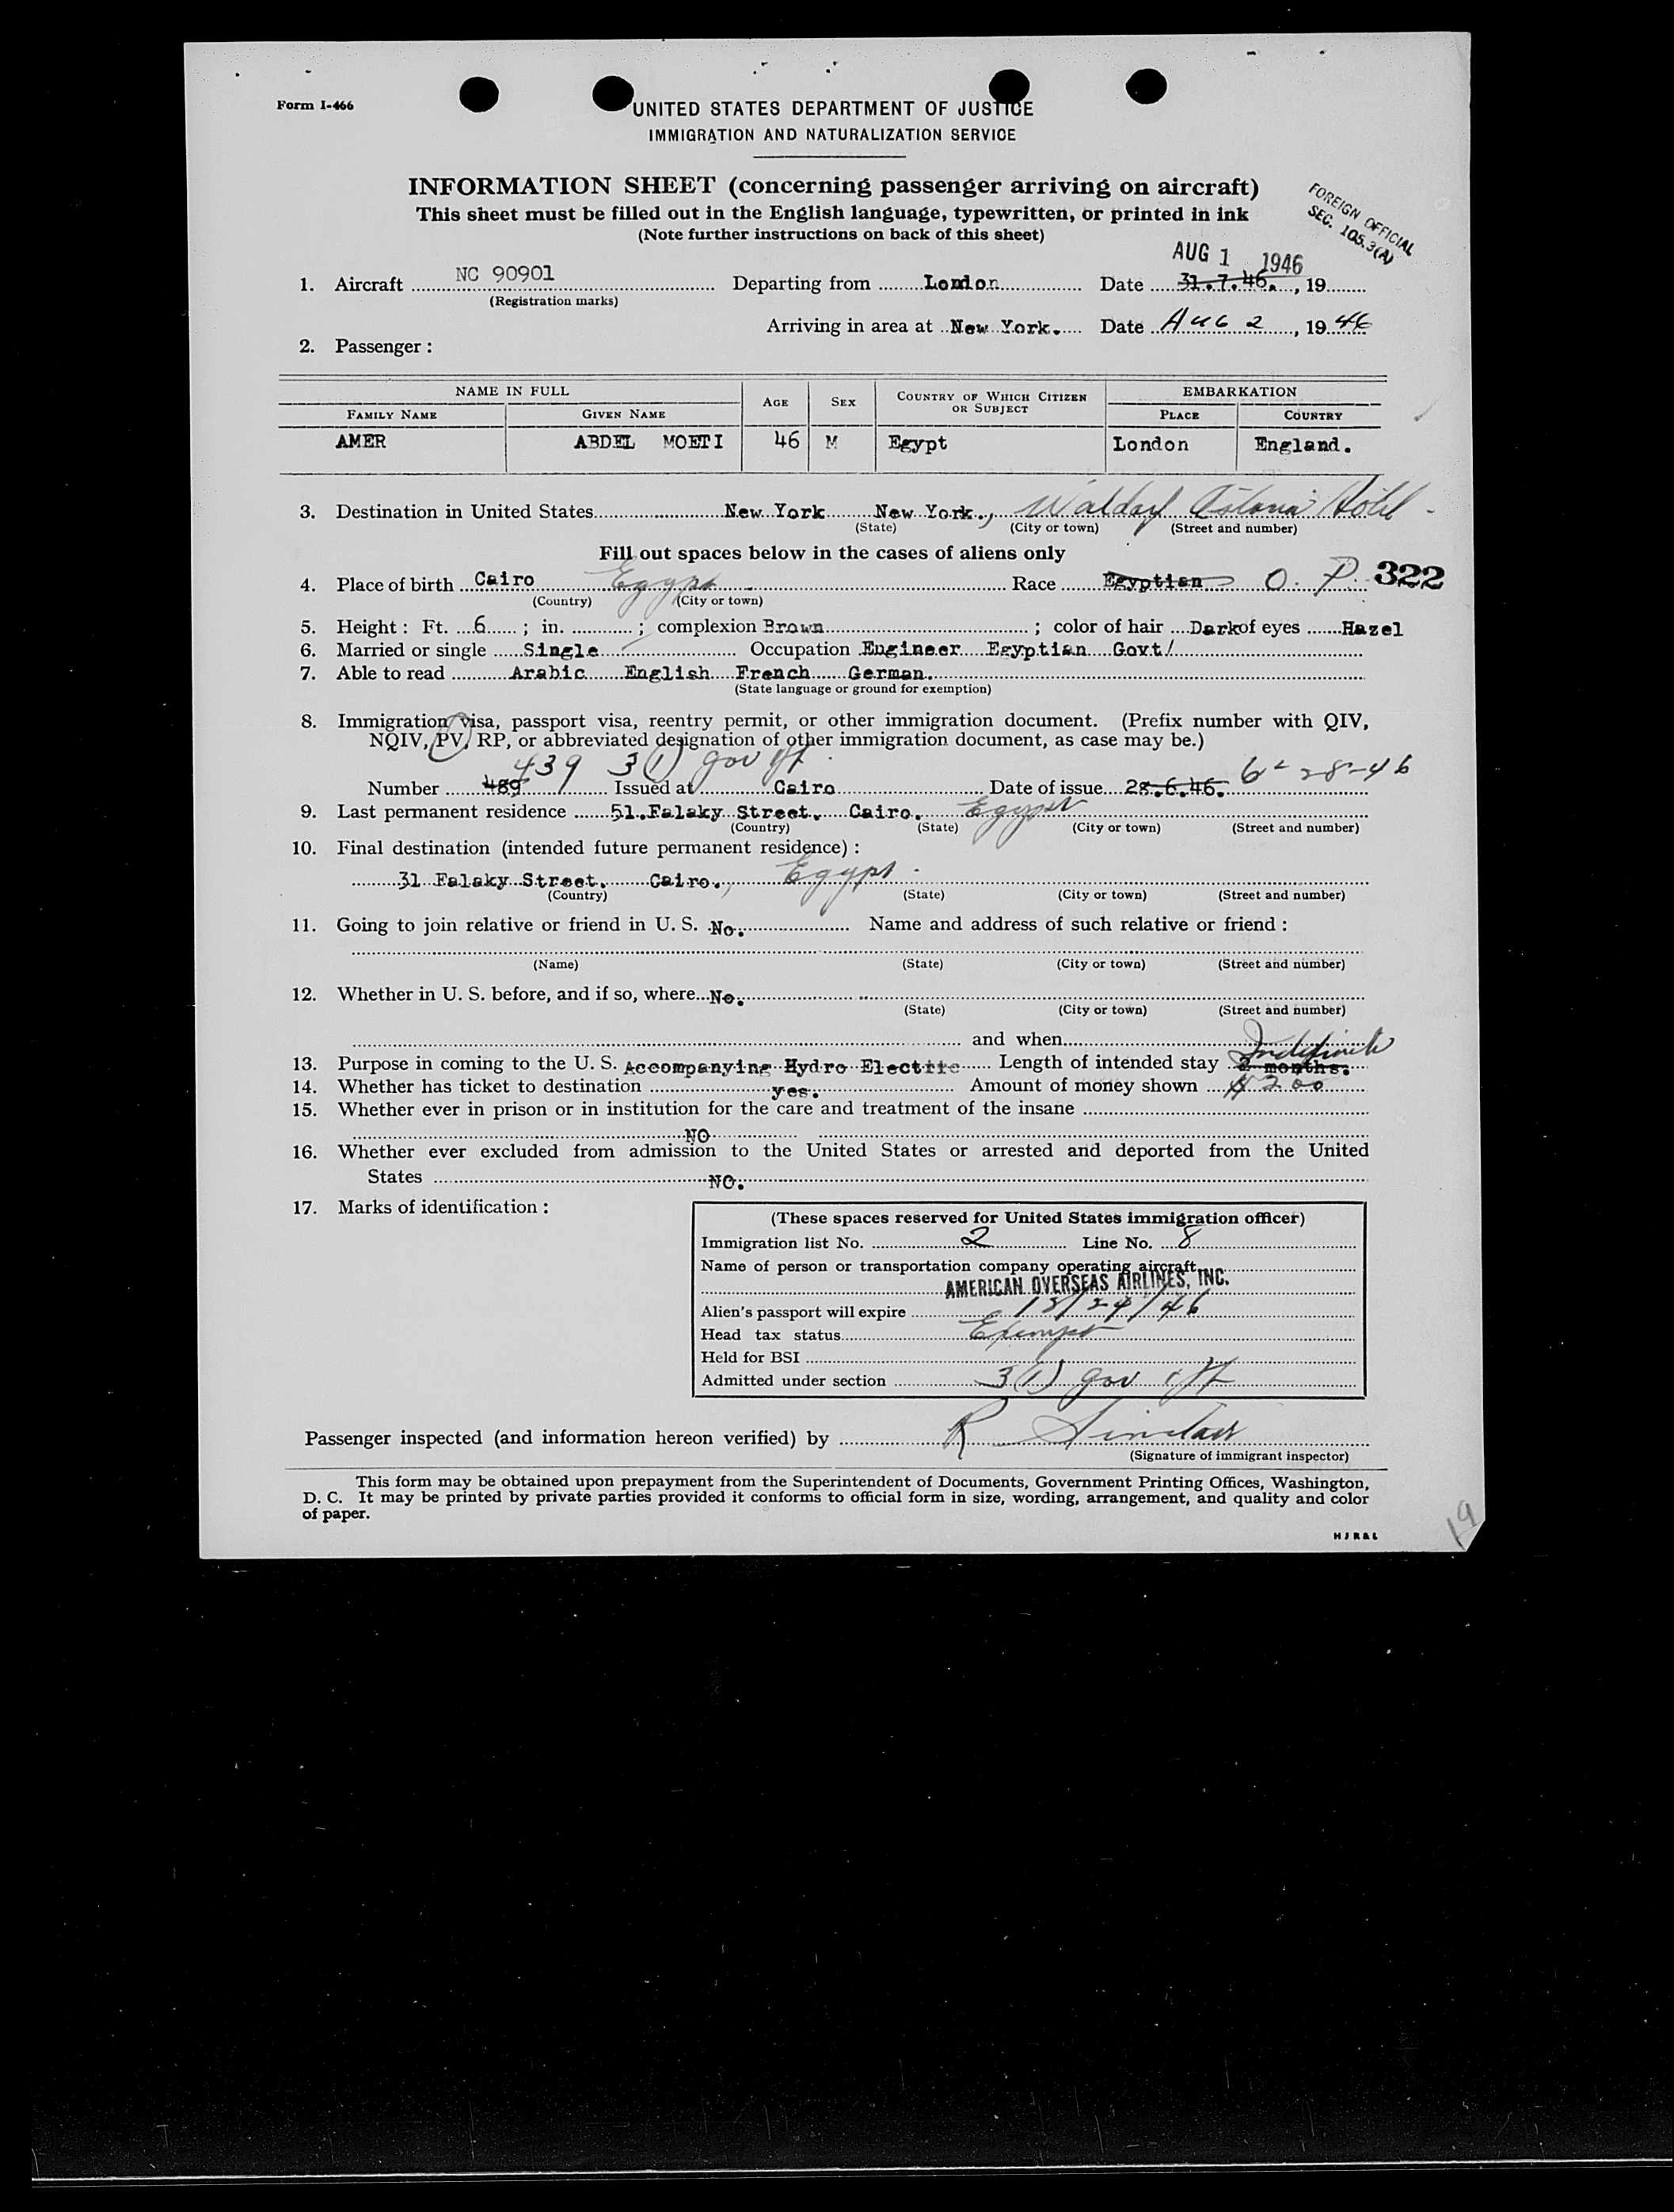 Form I-466
UNITED STATES DEPARTMENT OF JUSTICE
IMMIGRATION AND NATURALIZATION SERVICE
INFORMATION SHEET (concerning passenger arriving on aircraft)
This sheet must be filled out in the English language, typewritten, or printed in ink
(Note further instructions on back of this sheet)
FOREIGN OFFICIAL
SEC. 105.3(A)
AUG 1 1946
1. Aircraft NC 90901 Departing from London Date 31.7.46., 19
(Registration marks)
Arriving in area at New York. Date Aug 2, 1946
2. Passenger :
NAME IN FULL AGE SEX COUNTRY OF WHICH CITIZEN OR SUBJECT EMBARKATION
FAMILY NAME GIVEN NAME PLACE COUNTRY
AMER ABDEL MOETI 46 M Egypt London England.
3. Destination in United States New York New York., Waldorf Astoria Hotel
(State) (City or town) (Street and number)
Fill out spaces below in the cases of aliens only
4. Place of birth Cairo Egypt Race Egyptian O. P. 322
(Country) (City or town)
5. Height : Ft. 6 ; in. ; complexion Brown ; color of hair Dark of eyes Hazel
6. Married or single Single Occupation Engineer Egyptian Govt/
7. Able to read Arabic English French German.
(State language or ground for exemption)
8. Immigration visa, passport visa, reentry permit, or other immigration document. (Prefix number with QIV,
NQIV, PV, RP, or abbreviated designation of other immigration document, as case may be.)
439 3(1) gov
Number 489 Issued at Cairo Date of issue 28.6.46. 6-28-46
9. Last permanent residence 51.Falaky Street. Cairo. Egypt
(Country) (State) (City or town) (Street and number)
10. Final destination (intended future permanent residence) :
31 Falaky Street. Cairo. Egypt.
(Country) (State) (City or town) (Street and number)
11. Going to join relative or friend in U. S. No. Name and address of such relative or friend :
(Name) (State) (City or town) (Street and number)
12. Whether in U. S. before, and if so, where No.
(State) (City or town) (Street and number)
and when
13. Purpose in coming to the U. S. Accompanying Hydro Electric Length of intended stay 2 months. Indefinite
14. Whether has ticket to destination yes. Amount of money shown $200
15. Whether ever in prison or in institution for the care and treatment of the insane
NO
16. Whether ever excluded from admission to the United States or arrested and deported from the United
States NO.
17. Marks of identification :
(These spaces reserved for United States immigration officer)
Immigration list No. 2 Line No. 8
Name of person or transportation company operating aircraft
AMERICAN OVERSEAS AIRLINES, INC.
Alien's passport will expire 12/24/46
Head tax status Exempt
Held for BSI
Admitted under section 3(1) gov
Passenger inspected (and information hereon verified) by R Sinclair
(Signature of immigrant inspector)
This form may be obtained upon prepayment from the Superintendent of Documents, Government Printing Offices, Washington,
D. C. It may be printed by private parties provided it conforms to official form in size, wording, arrangement, and quality and color
of paper.
H J R & L
19